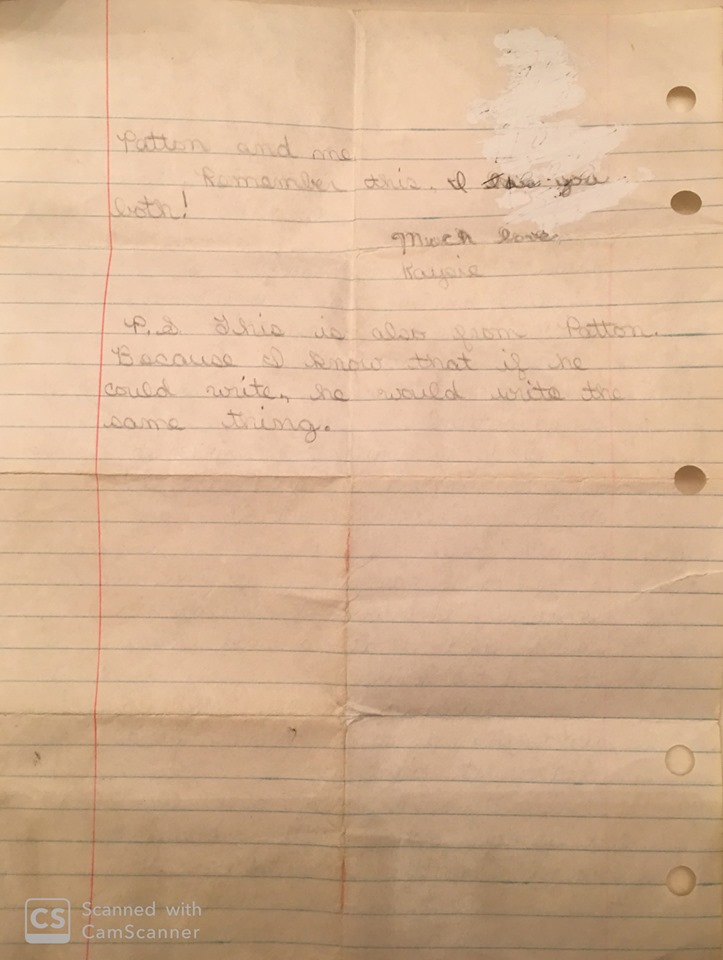 Patton and me.
Remember this. I you
both!
Much love
Kaysie
P.S. This is also from Patton.
Because I know that if he
could write, he would write the
same thing.
CS Scanned with
CamScanner